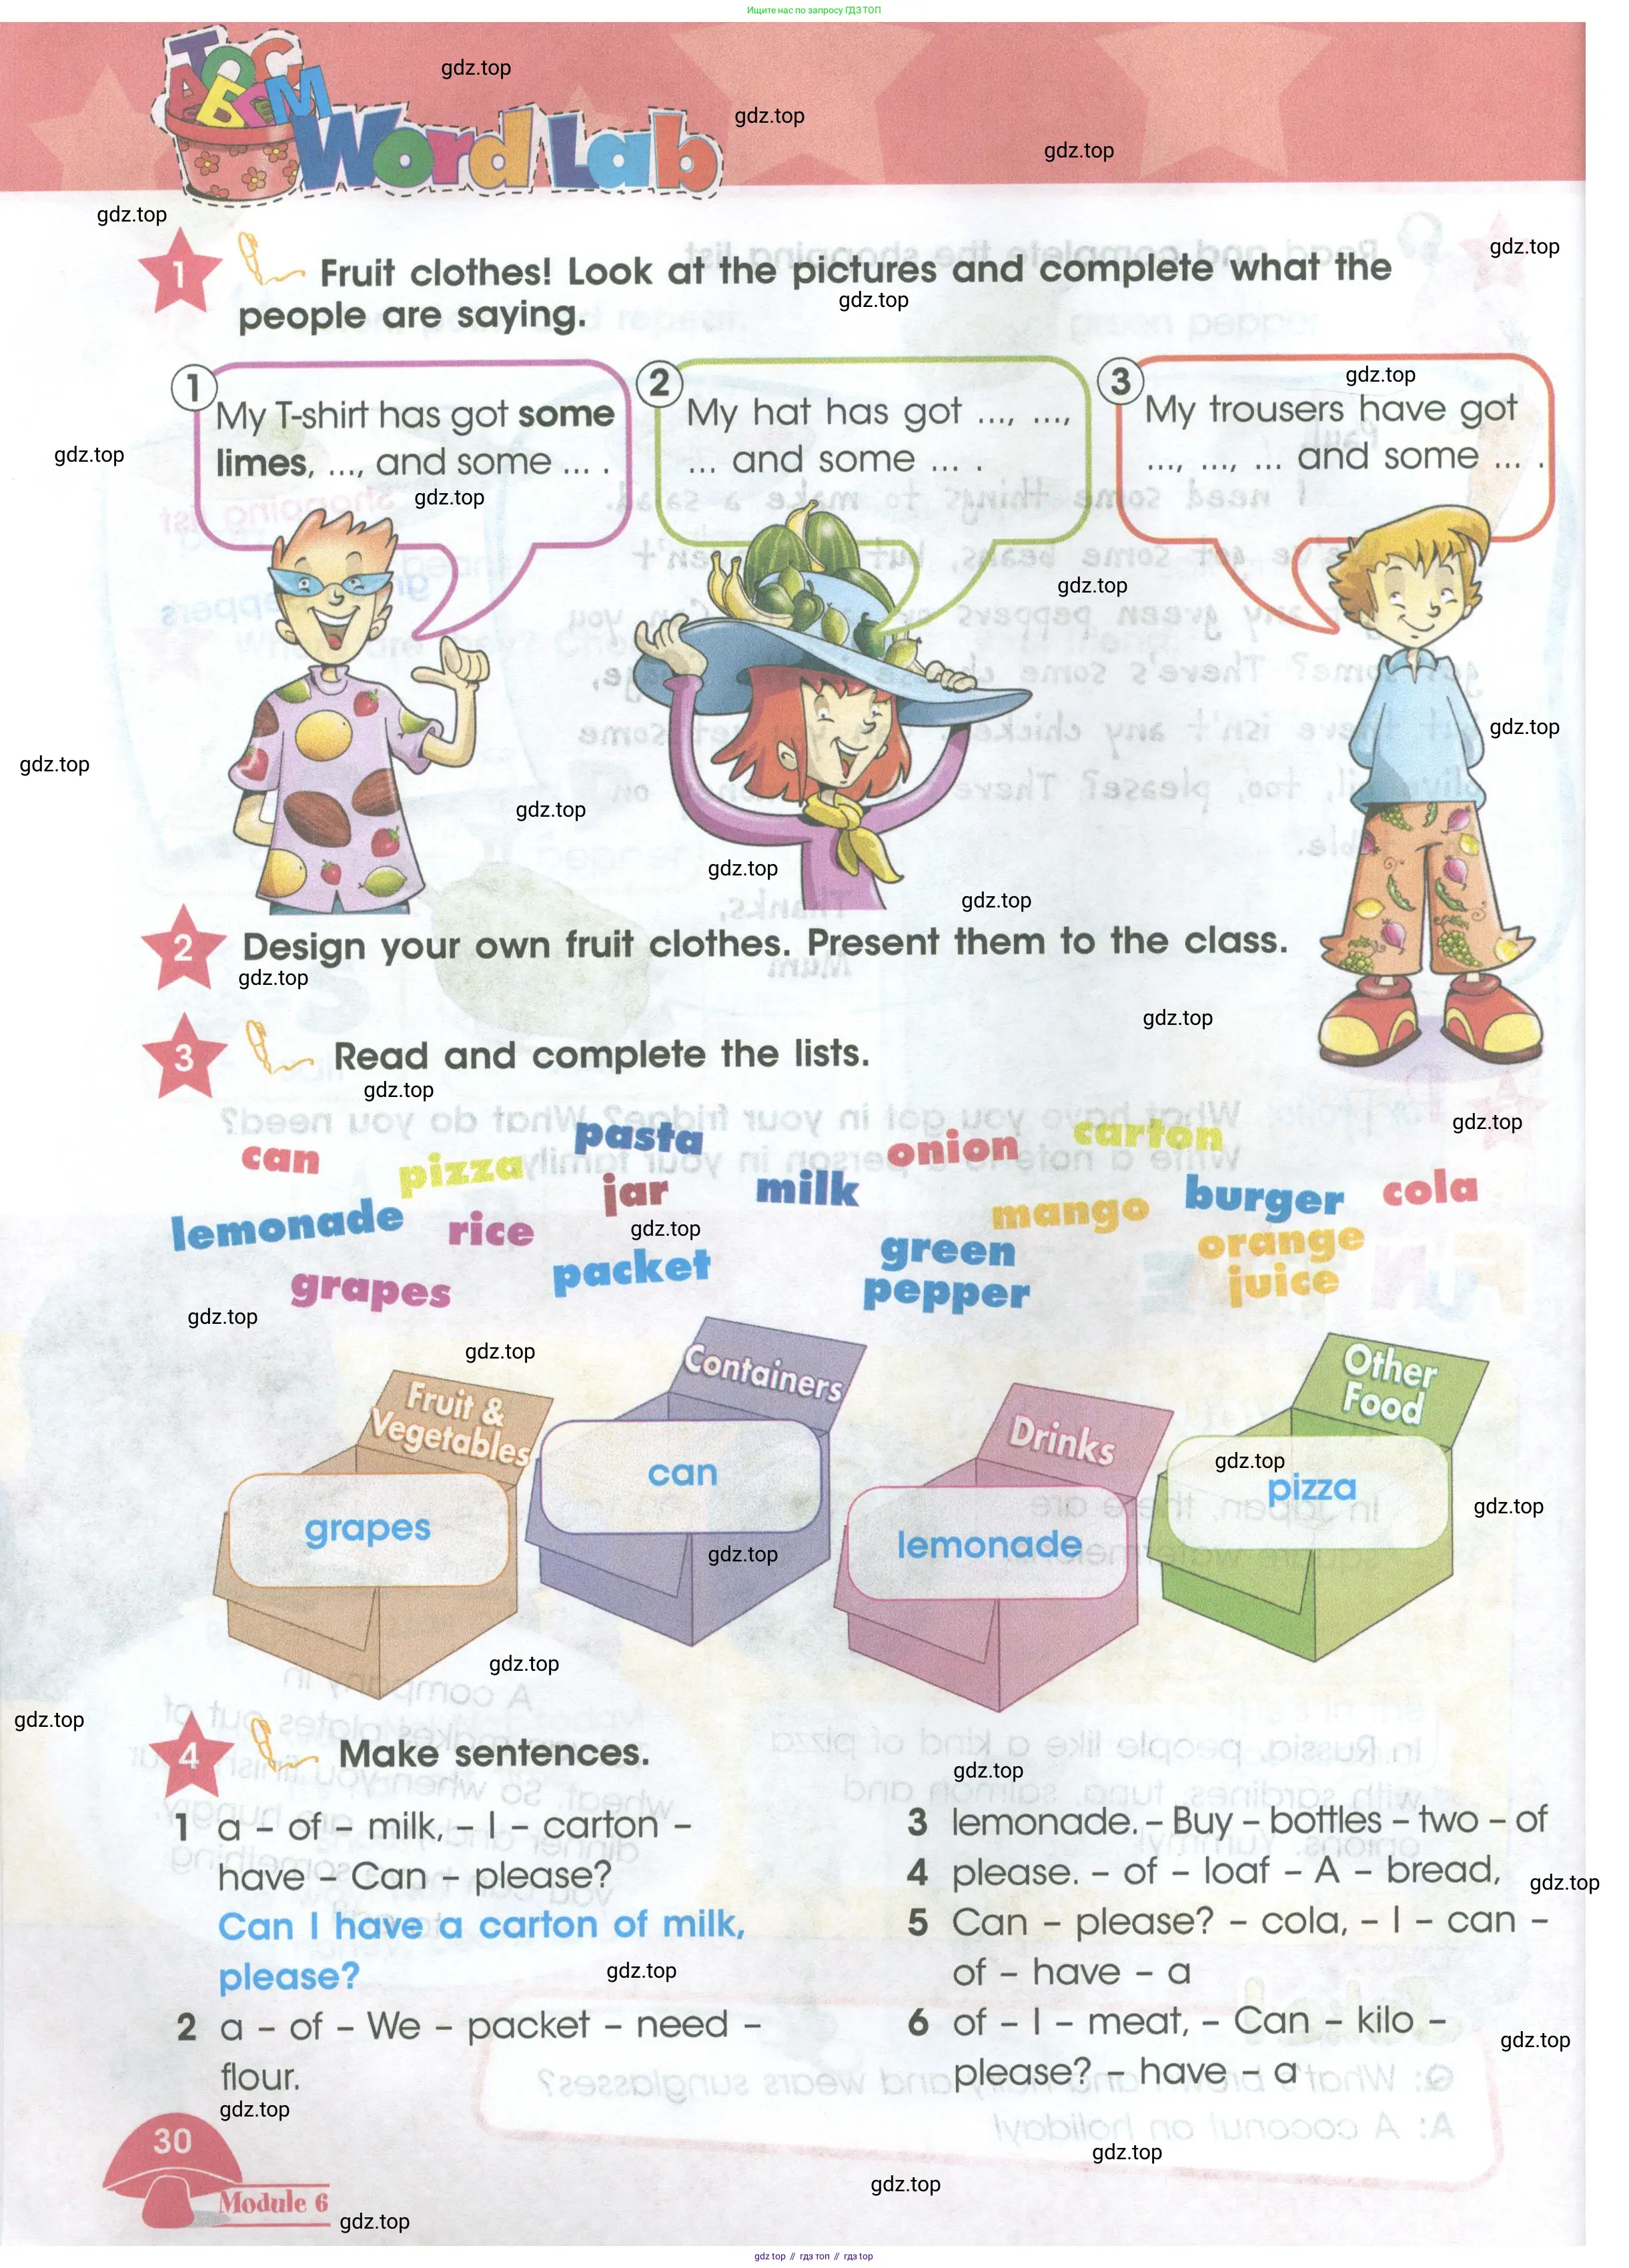 Ищите нас по запросу ГДЗ ТОП
Word Lab
1 Fruit clothes! Look at the pictures and complete what the
people are saying.
1
My T-shirt has got some
limes, ..., and some ... .
2
My hat has got ..., ...,
... and some ... .
3
My trousers have got
..., ..., ... and some ... .
2 Design your own fruit clothes. Present them to the class.
3 Read and complete the lists.
can
pizza
pasta
onion
carton
lemonade
rice
jar
milk
mango
burger
cola
grapes
packet
green
pepper
orange
juice
Fruit &
Vegetables
grapes
Containers
can
Drinks
lemonade
Other
Food
pizza
4 Make sentences.
1 a – of – milk, – I – carton –
have – Can – please?
Can I have a carton of milk,
please?
2 a – of – We – packet – need –
flour.
3 lemonade. – Buy – bottles – two – of
4 please. – of – loaf – A – bread,
5 Can – please? – cola, – I – can –
of – have – a
6 of – I – meat, – Can – kilo –
please? – have – a
30
Module 6
gdz.top
gdz top // гдз топ // гдз top